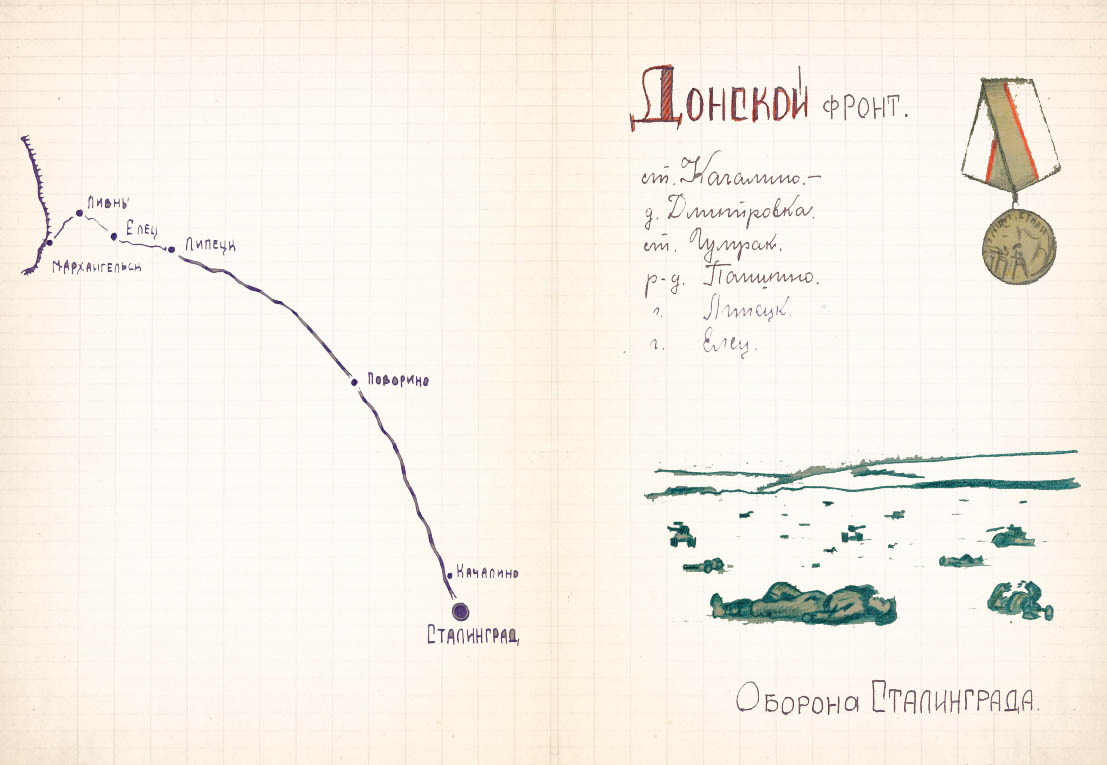 Ливнь
Елец
Липецк
М.Архангельск
Поворино
Качалино
Сталинград
Донской фронт.
ст. Качалино.–
д. Дмитровка.
ст. Гумрак.
р-д. Паншино.
г. Липецк.
г. Елец.
Оборона Сталинграда.